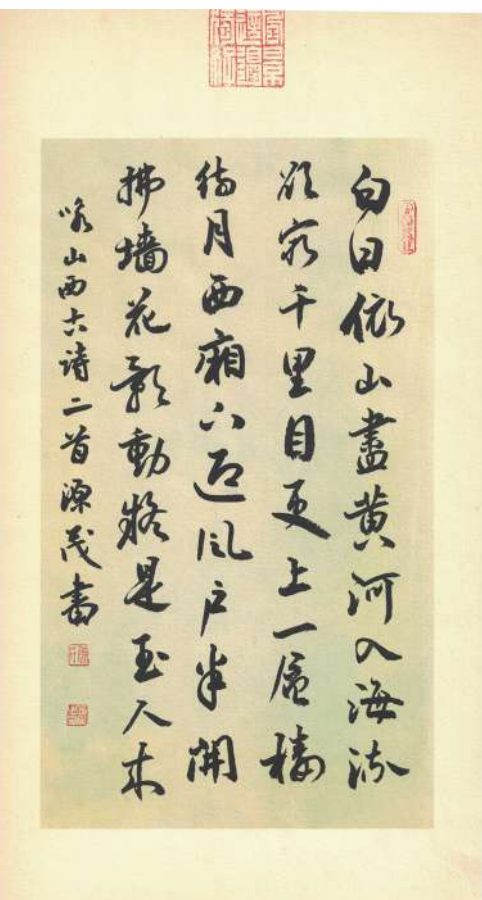 白日依山盡黄河入海流
欲窮千里目更上一層樓
待月西廂下迎風户半開
拂墙花影動疑是玉人来
咏山西古詩二首源茂書